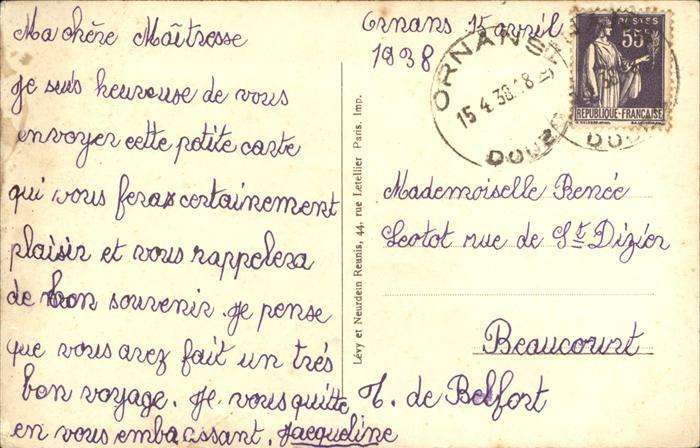 Ornans 15 avril
1938
Ma chère Maîtresse
Je suis heureuse de vous
envoyer cette petite carte
qui vous feras certainement
plaisir et vous rappelera
de bon souvenir. Je pense
que vous avez fait un très
bon voyage. Je vous quitte
en vous embrassant. Jacqueline
Lévy et Neurdein Reunis, 44, rue Letellier Paris. Imp.
ORNANS
15 4 38
DOUBS
POSTES
55c
REPUBLIQUE-FRANÇAISE
Mademoiselle Renée
rue de St Dizier
Beaucourt
T. de Belfort